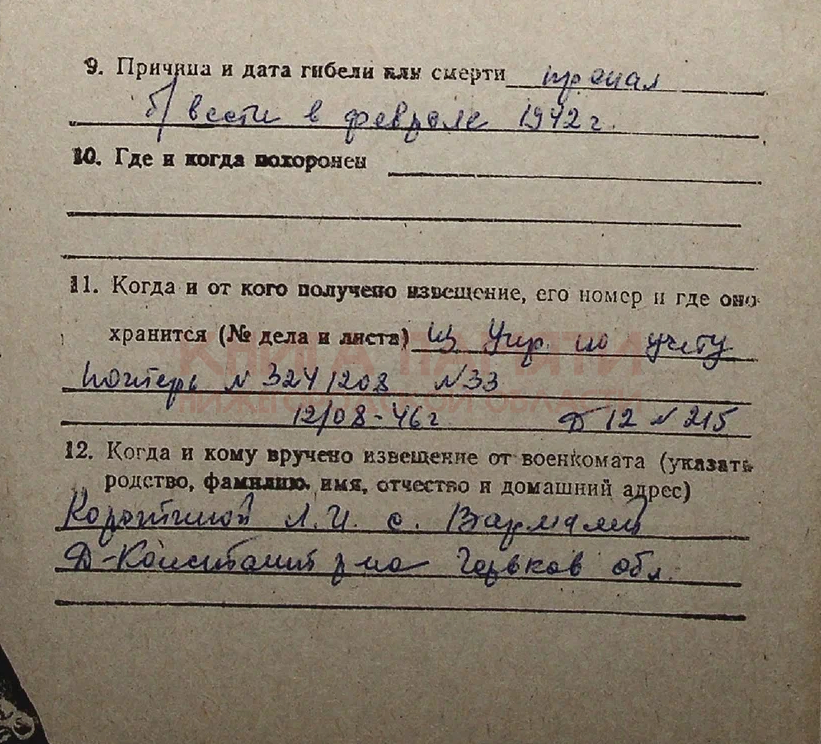 9. Причина и дата гибели или смерти пропал
б/вести в феврале 1942 г.
10. Где и когда похоронен
11. Когда и от кого получено извещение, его номер и где оно
хранится (№ дела и листа) из Упр. по учету
КНИГА ПАМЯТИ
потерь N 3241208 N33
НИЖЕГОРОДСКОЙ ОБЛАСТИ
12/08-46г. Д 12 N 215
12. Когда и кому вручено извещение от военкомата (указать
родство, фамилию, имя, отчество и домашний адрес)
Л.И. с.
Д-Констант р-на Горьков обл.